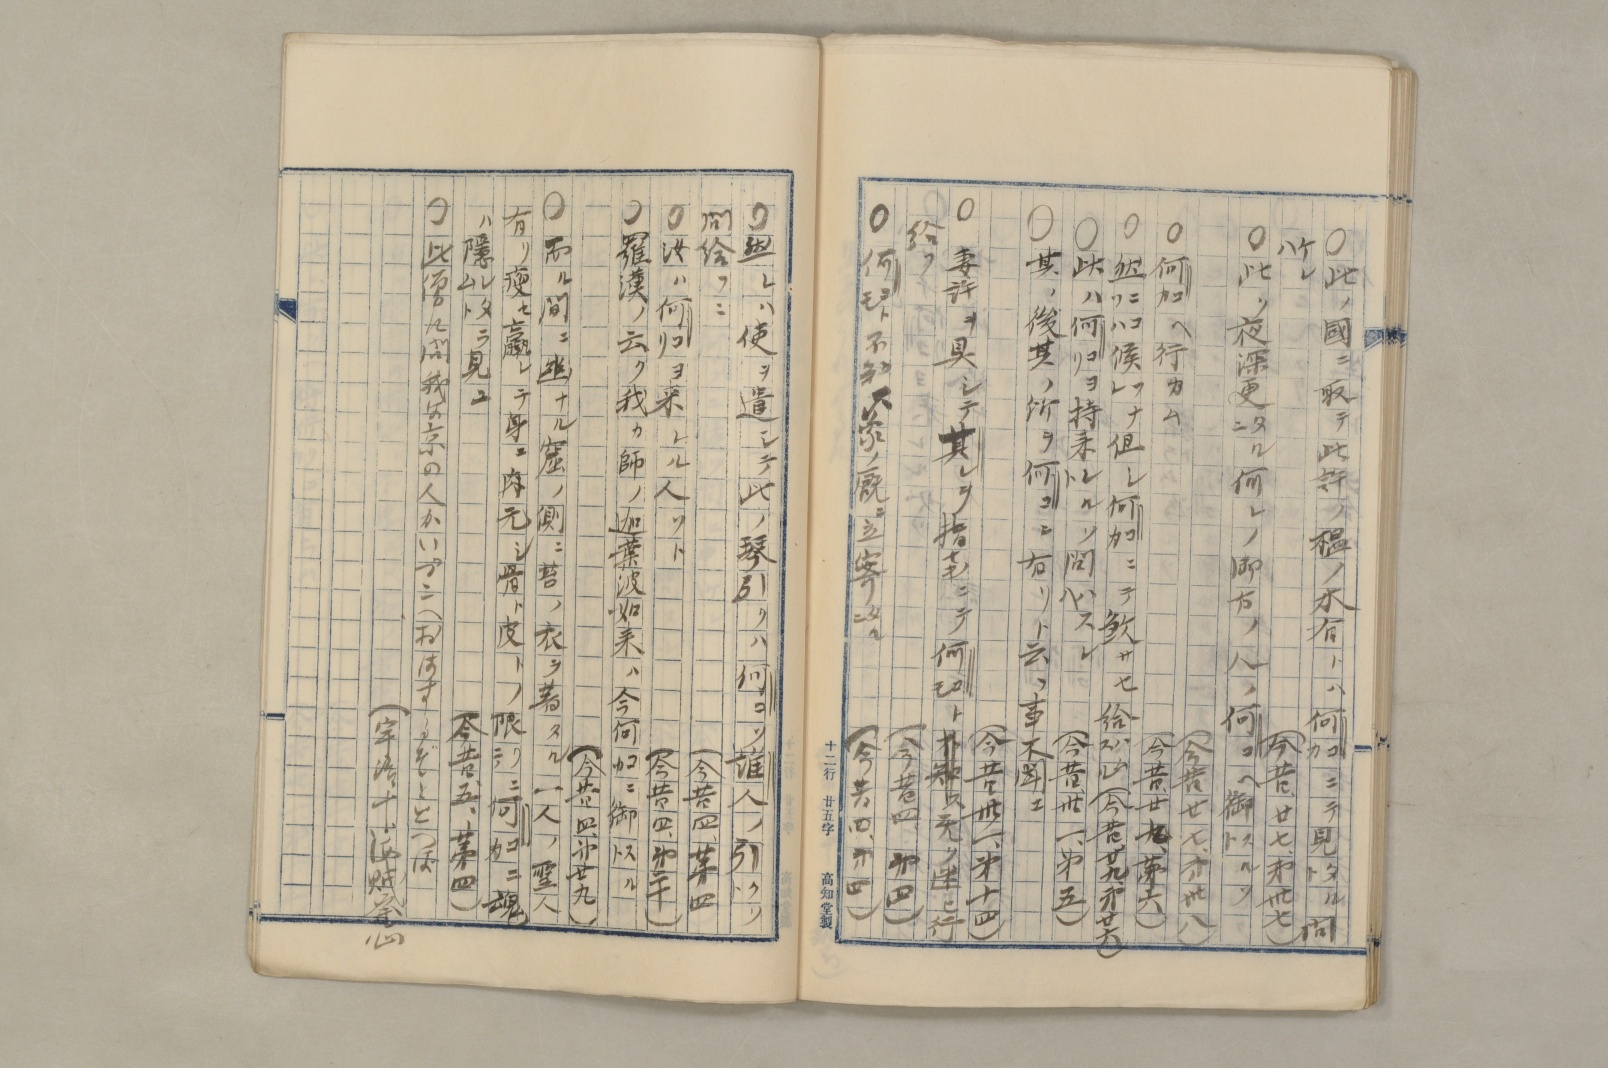 ○此ノ國ニ取テ此許ノ榲ノ木有トハ何カコニテ見タルト問
ハケレ
(今昔、廿七、第卅七)
○此ク夜深更ニタル何レノ御方ノ人ノ何コヘ御トスルソ
(今昔廿七、第卅八)
○何カコヘ行カム
(今昔、廿九、第六)
○然ニコハ候ツレナ但シ何カコニテ飲サセ給ハム(今昔、廿九、第廿六)
○此ハ何リコヨリ持来レルソト問ハスレハ
(今昔卅一、第五)
○其ノ後其ノ所ヲ何コニ有リト云フ事不聞エ
(今昔卅一、第十四)
○妻許ヲ具シテ其レヲ指電ニテ何モコト不知只元ノ迷ニ行
給フ
(今昔四、第四)
○何モコト不知人象ノ厩ニ立寄タルニ
(今昔四、第四)
十二行 廿五字 高知堂製
○然レハ使ヲ遣シテ此ノ琴引クハ何コソ誰人ノ引クソト
問給フニ
(今昔四、第四
○汝ハ何リコヨリ来レル人ソト
(今昔四、第二十)
○羅漢ノ云ク我カ師ノ迦葉波如来ハ今何カコニ御トスル
(今昔四、第廿九)
○而ル間ニ幽ナル窟ノ側ニ苔ノ衣ヲ著タル一人ノ聖人
有リ痩セ羸レテ身ニ肉元シ骨ト皮トノ限リニシテ何カコニ魂
ハ隠レタラムト見ユ
(今昔、五、第四)
○此僧に問我は京の人かいつこへおはするぞととへば
(宇治十、海賊發心